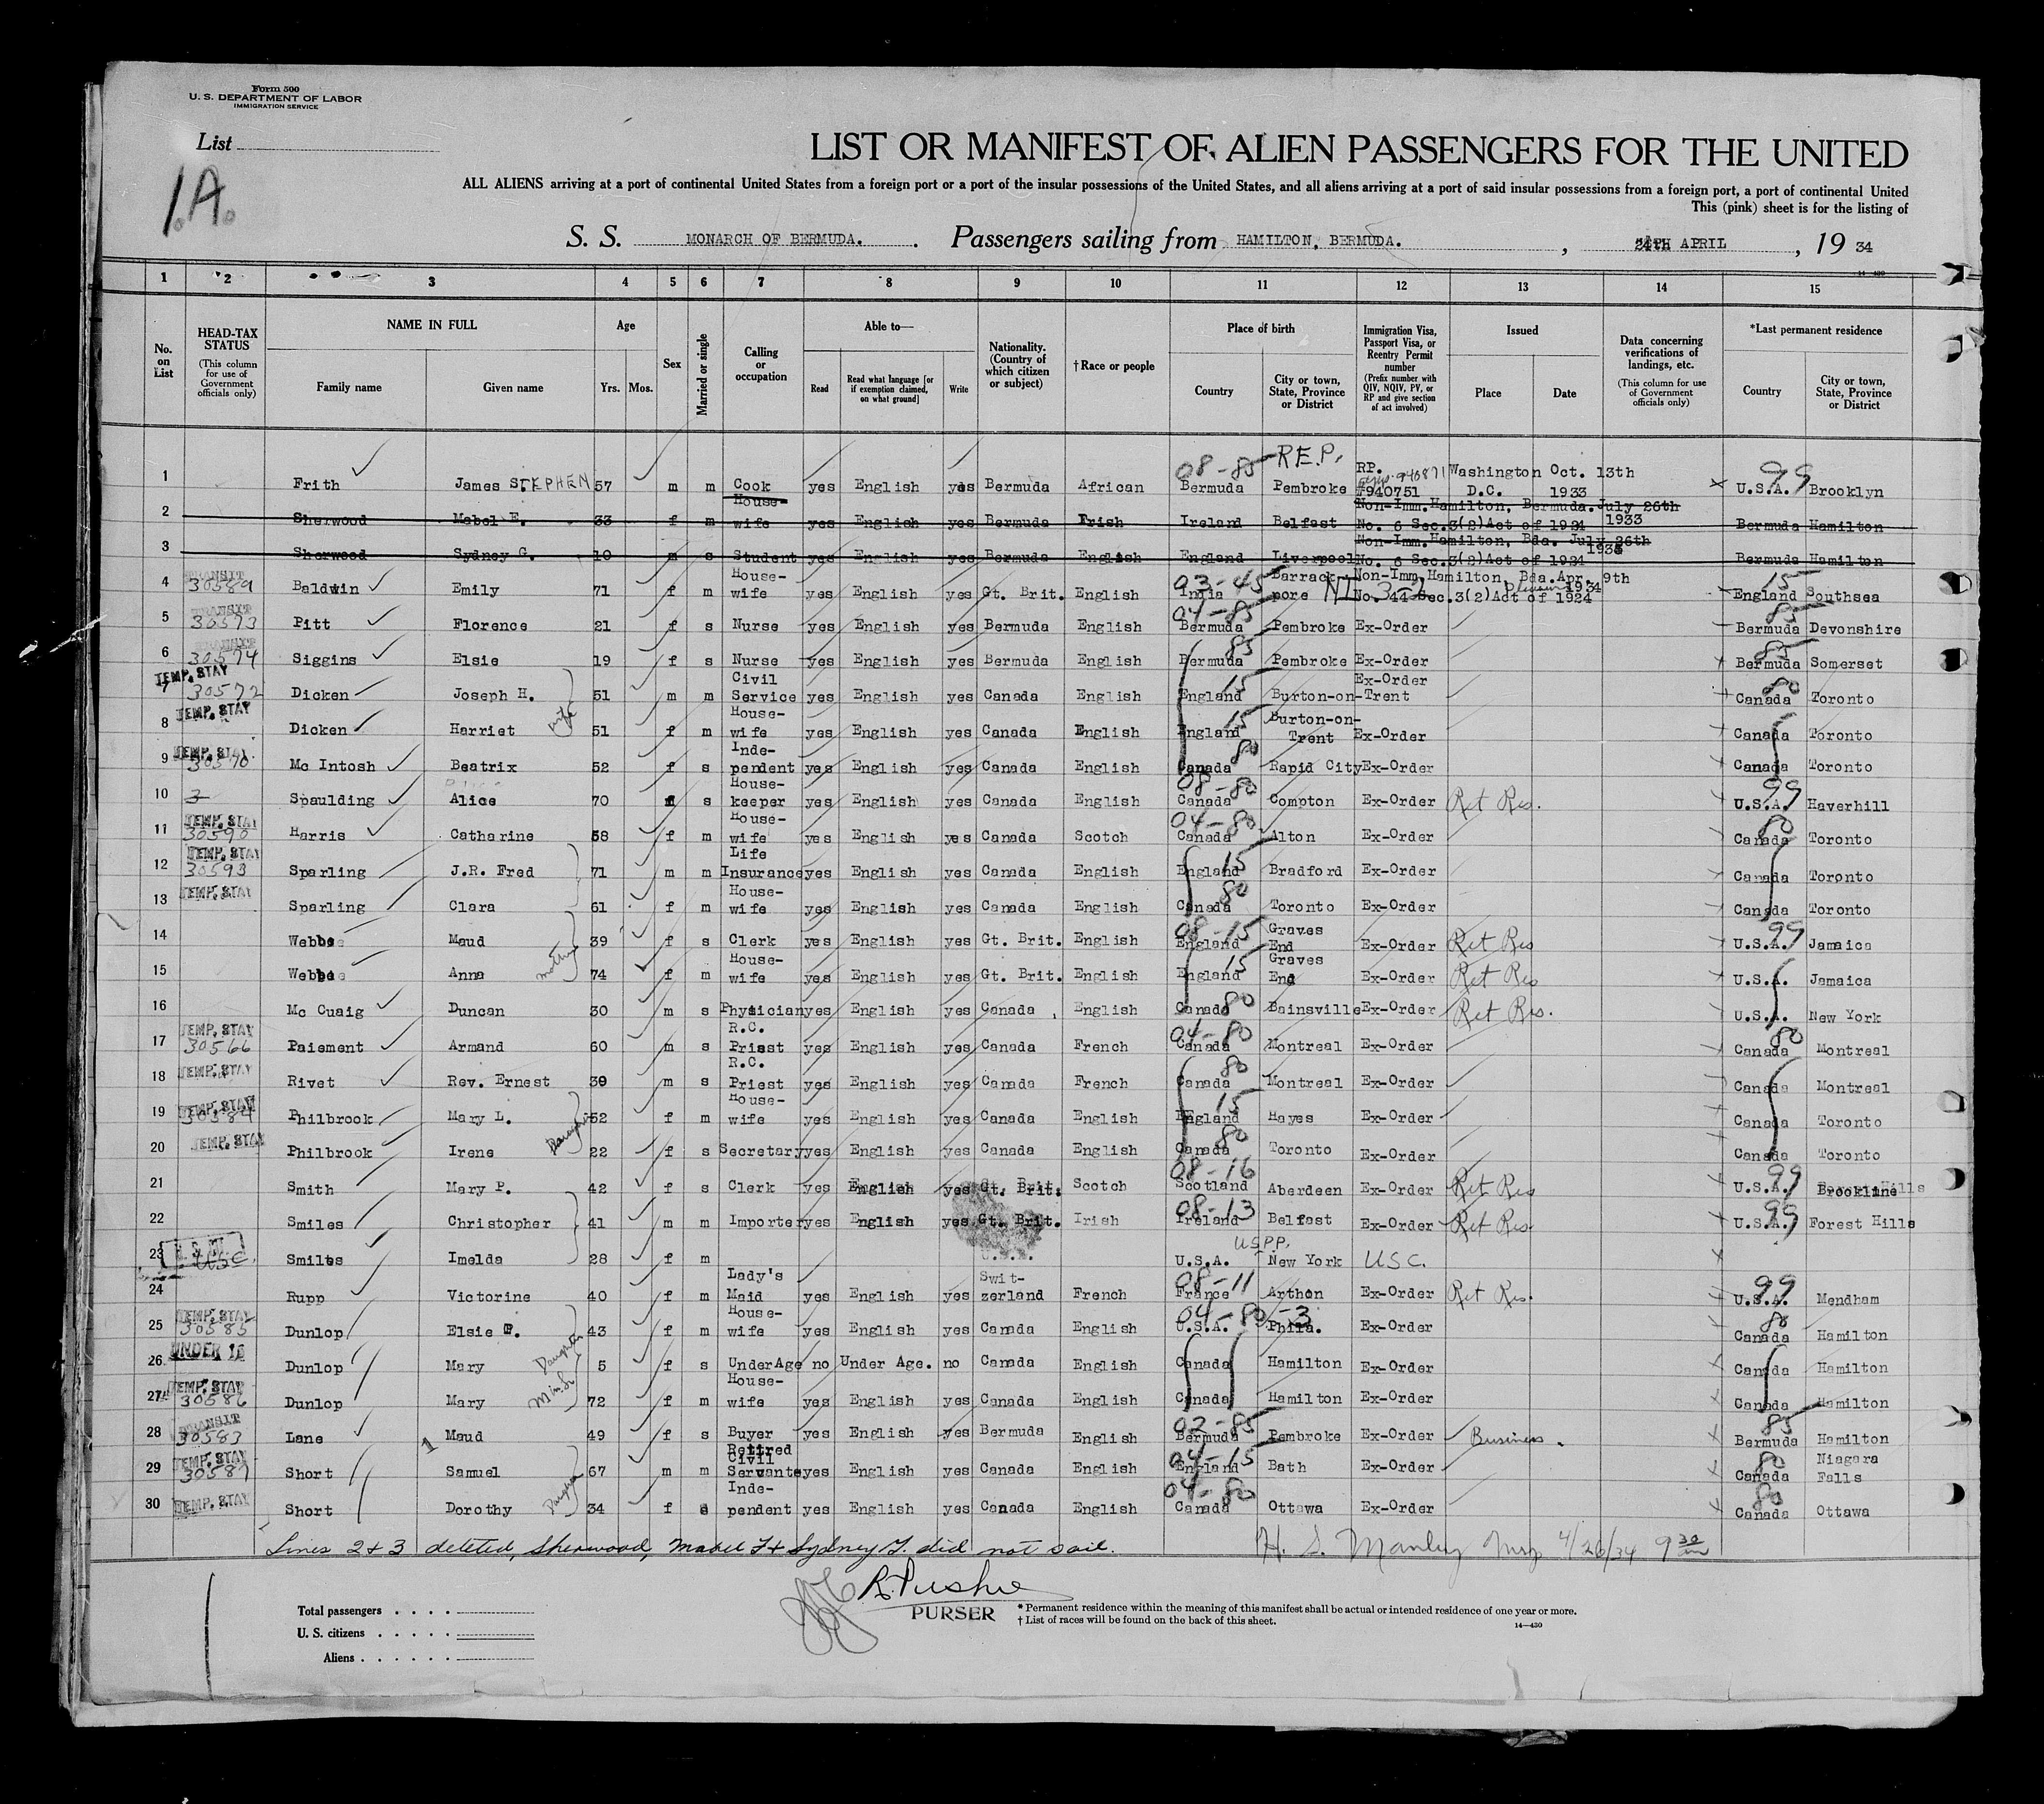 Form 500
U. S. DEPARTMENT OF LABOR
IMMIGRATION SERVICE
List
1.A.
LIST OR MANIFEST OF ALIEN PASSENGERS FOR THE UNITED
ALL ALIENS arriving at a port of continental United States from a foreign port or a port of the insular possessions of the United States, and all aliens arriving at a port of said insular possessions from a foreign port, a port of continental United
This (pink) sheet is for the listing of
S. S. MONARCH OF BERMUDA. Passengers sailing from HAMILTON, BERMUDA. , APRIL , 19 34
14—430
1 2 3 4 5 6 7 8 9 10 11 12 13 14 15
No. on List
HEAD-TAX STATUS (This column for use of Government officials only)
NAME IN FULL Family name Given name
Age Yrs. Mos.
Sex
Married or single
Calling or occupation
Able to— Read Read what language [or if exemption claimed, on what ground] Write
Nationality. (Country of which citizen or subject)
†Race or people
Place of birth Country City or town, State, Province or District
Immigration Visa, Passport Visa, or Reentry Permit number (Prefix number with QIV, NQIV, PV, or RP and give section of act involved)
Issued Place Date
Data concerning verifications of landings, etc. (This column for use of Government officials only)
*Last permanent residence Country City or town, State, Province or District
1 Frith James STEPHEN 57 m m Cook yes English yes Bermuda African 08-85 Bermuda R.E.P. Pembroke RP. 940871 #940751 Washington D.C. Oct. 13th 1933 99 U.S.A. Brooklyn
2 Sherwood Mabel E. 33 f m House-wife yes English yes Bermuda Irish Ireland Belfast Non-Imm. Hamilton, Bermuda. July 26th 1933 No. 6 Sec.3(2)Act of 1924 Bermuda Hamilton
3 Sherwood Sydney G. 10 m s Student yes English yes Bermuda English England Liverpool Non-Imm. Hamilton, Bda. July 26th No. 6 Sec.3(2)Act of 1924 Bermuda Hamilton
4 TRANSIT 30589 Baldwin Emily 71 f m House-wife yes English yes Gt. Brit. English 03-45 India Barrack-pore Non-Imm. Hamilton, Bda. Apr. 9th 1934 No. 44 Sec.3(2)Act of 1924 15 England Southsea
5 TRANSIT 30573 Pitt Florence 21 f s Nurse yes English yes Bermuda English 04-85 Bermuda Pembroke Ex-Order 85 Bermuda Devonshire
6 TRANSIT 30574 Siggins Elsie 19 f s Nurse yes English yes Bermuda English 85 Bermuda Pembroke Ex-Order 85 Bermuda Somerset
7 TEMP. STAY 30572 Dicken Joseph H. 51 m m Civil Service yes English yes Canada English 15 England Burton-on-Trent Ex-Order 80 Canada Toronto
8 TEMP. STAY Dicken Harriet wife 51 f m House-wife yes English yes Canada English 15 England Burton-on-Trent Ex-Order Canada Toronto
9 TEMP. STAY 30570 Mc Intosh Beatrix 52 f s Inde-pendent yes English yes Canada English 80 Canada Rapid City Ex-Order Canada Toronto
10 3 Spaulding Alice 70 f s House-keeper yes English yes Canada English 08-80 Canada Compton Ex-Order Ret Res. 99 U.S.A. Haverhill
11 TEMP. STAY 30590 Harris Catharine 58 f m House-wife yes English yes Canada Scotch 04-80 Canada Alton Ex-Order 80 Canada Toronto
12 TEMP. STAY 30593 Sparling J.R. Fred 71 m m Life Insurance yes English yes Canada English 15 England Bradford Ex-Order Canada Toronto
13 TEMP. STAY Sparling Clara 61 f m House-wife yes English yes Canada English 80 Canada Toronto Ex-Order Canada Toronto
14 Webbe Maud 39 f s Clerk yes English yes Gt. Brit. English 08-15 England Graves End Ex-Order Ret Res 99 U.S.A. Jamaica
15 Webbe Anna mother 74 f m House-wife yes English yes Gt. Brit. English 15 England Graves End Ex-Order Ret Res U.S.A. Jamaica
16 Mc Cuaig Duncan 30 m s Physician yes English yes Canada English 80 Canada Bainsville Ex-Order Ret Res. U.S.A. New York
17 TEMP. STAY 30566 Paiement Armand 60 m s R.C. Priest yes English yes Canada French 04-80 Canada Montreal Ex-Order 80 Canada Montreal
18 TEMP. STAY Rivet Rev. Ernest 39 m s R.C. Priest yes English yes Canada French 80 Canada Montreal Ex-Order Canada Montreal
19 TEMP. STAY 30584 Philbrook Mary L. 52 f m House-wife yes English yes Canada English 15 England Hayes Ex-Order Canada Toronto
20 TEMP. STAY Philbrook Irene Daughter 22 f s Secretary yes English yes Canada English 80 Canada Toronto Ex-Order Canada Toronto
21 Smith Mary P. 42 f s Clerk yes English yes Gt. Brit. Scotch 08-16 Scotland Aberdeen Ex-Order Ret Res 99 U.S.A. Brookline
22 Smiles Christopher 41 m m Importer yes English yes Gt. Brit. Irish 08-13 Ireland Belfast Ex-Order Ret Res 99 U.S.A. Forest Hills
23 USC. Smiles Imelda 28 f m U.S.A. U.S.P.P. New York USC.
24 Rupp Victorine 40 f m Lady's Maid yes English yes Swit-zerland French 08-11 France Arthon Ex-Order Ret Res. 99 U.S.A. Mendham
25 TEMP. STAY 30585 Dunlop Elsie F. 43 f m House-wife yes English yes Canada English 04-80-3 U.S.A. Phila. Ex-Order 80 Canada Hamilton
26 UNDER 16 Dunlop Mary Daughter 5 f s UnderAge no Under Age. no Canada English Canada Hamilton Ex-Order Canada Hamilton
27 TEMP. STAY 30586 Dunlop Mary 72 f m House-wife yes English yes Canada English Canada Hamilton Ex-Order Canada Hamilton
28 TRANSIT 30583 Lane 1 Maud 49 f s Buyer yes English yes Bermuda English 02-85 Bermuda Pembroke Ex-Order Business. 85 Bermuda Hamilton
29 TEMP. STAY 30587 Short Samuel 67 m m Retired Civil Servant yes English yes Canada English 04-15 England Bath Ex-Order 80 Canada Niagara Falls
30 TEMP. STAY Short Dorothy Daughter 34 f s Inde-pendent yes English yes Canada English 04-80 Canada Ottawa Ex-Order 80 Canada Ottawa
Lines 2 & 3 deleted, Sherwood, Mabel & Sydney did not sail. H. S. Manley 4/26/34 9 30 am
PURSER
Total passengers . . . .
U. S. citizens . . . . .
Aliens . . . . . .
* Permanent residence within the meaning of this manifest shall be actual or intended residence of one year or more.
† List of races will be found on the back of this sheet.
14—430